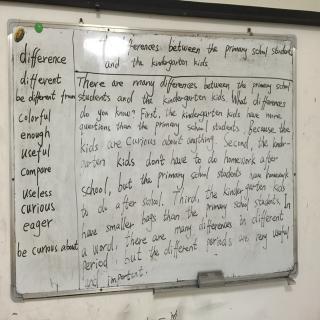 difference
different
be different from
colorful
enough
useful
compare
useless
curious
eager
be curious about
differences between the primary school students
and the kindergarten kids
There are many differences between the primary school
students and the kindergarten kids. What differences
do you know? First, the kindergarten kids have more
questions than the primary school students, because the
kids are curious about anything. Second, the kinder-
garten kids don't have to do homework after
school, but the primary school students have homework
to do after school. Third, the kindergarten kids
have smaller bags than the primary school students. In
a word, there are many differences in different
period, but the different periods are very useful
and important.